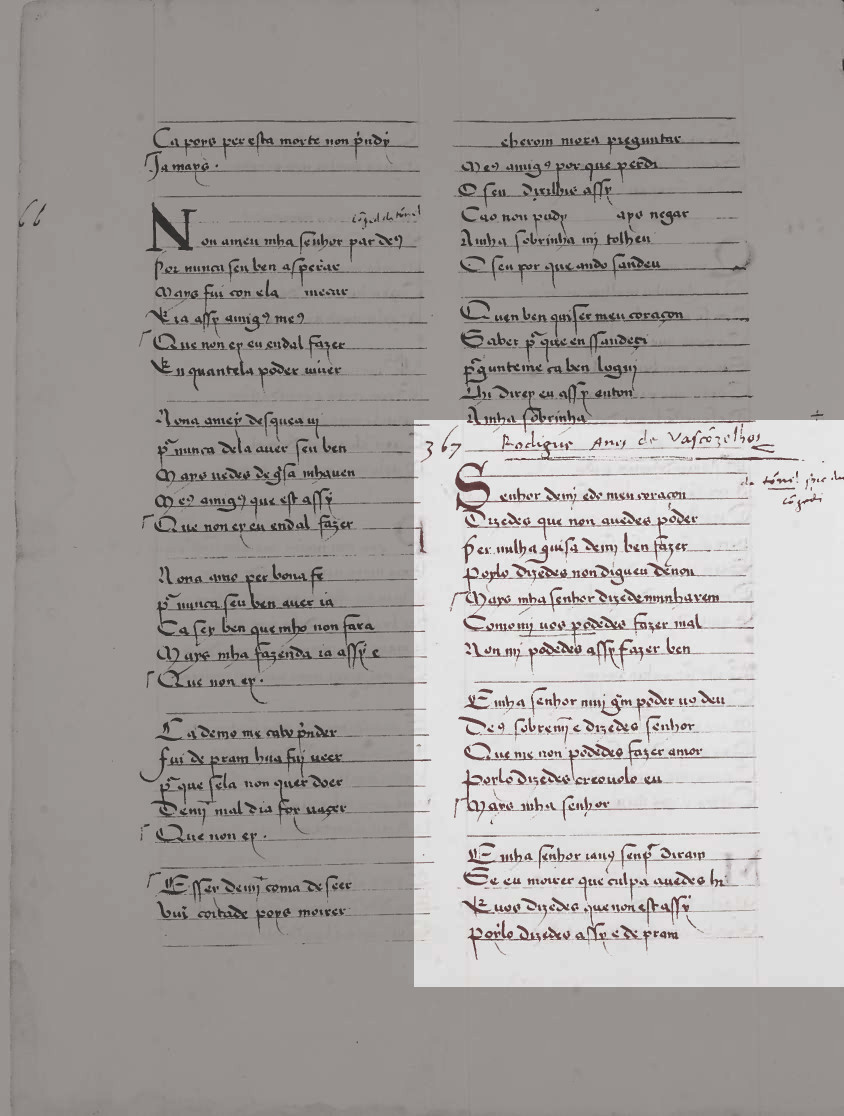 Ca poys per esta morte non p̃ndy
Ja mays .
66
cõged da tornel
Non ameu mha senhor par deꝯ
Por nunca seu ben asperar
Mays fui con ela mecar
E ia assy amigꝯ meꝯ
Que non ey eu endal fazer
En quantela poder uiuer
Nona amey desquea ui
pꝛ̃ nunca dela auer seu ben
Mays uedes de g̃sa mhauen
Meꝯ amigꝯ que est assy
Que non ey eu endal fazer
Nona amo per bona fe
pꝛ̃ nunca seu ben auer ia
Ca sey ben que mho non fara
Mays mha fazenda ia assy e
Que non ey .
Ca demo me cabo p̃nder
fui de pram hua fuy ueer
pꝛ̃ que sela non quer doer
Demi mal dia foy naçer
Que non ey .
Essey demi coma de seer
coitade poys moirer
eherom mora preguntar
Meꝯ amigꝯ por que perdi
O seu dizilhis assy
Cao non pudy ayo negar
A mha sobrinha mi tolheu
O seu por que ando sandeu
Quen ben quiser meu coraçon
Saber pꝛ̃ que en ssandeçi
pꝛ̃gunteme ca ben loguj
Lhi direy eu assy enton
A mha sobrinha
367 Rodigue Anes de Vascõzelhos
da tornel
cõgedi
Senhor demj e do meu coraçon
Dizedes que non auedes poder
Per nulha guisa demj ben fazer
Poylo dizedes non digueu de non
Mays mha senhor dizedeminharem
Comomj uos podedes fazer mal
Non mj podedes assy fazer ben
E mha senhor muj g̃m poder uo deu
Deꝯ sobremĩ e dizedes senhor
Que me non podedes fazer amor
Poylo dizedes creouolo eu
Mays mha senhor
E mha senhor senpꝛ̃ diram
Se eu moirer que culpa auedes hi
E uos dizedes que non est assy
Poylo dizedes assy e de pram